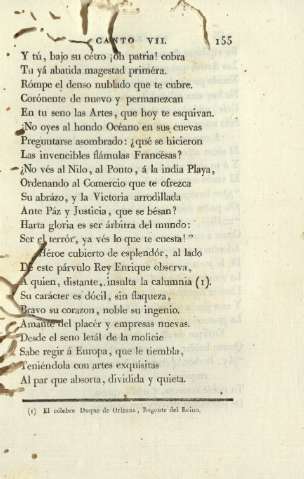 CANTO VII. 155
Y tú, bajo su cétro ¡oh patria! cobra
Tu yá abatida magestad priméra.
Rómpe el denso nublado que te cubre.
Corónente de nuevo y permanezcan
En tu seno las Artes, que hoy te esquivan.
¿No oyes al hondo Océano en sus cuevas
Preguntarse asombrado: ¿qué se hicieron
Las invencibles flámulas Francésas?
¿No vés al Nilo, al Ponto, á la india Playa,
Ordenando al Comercio que te ofrezca
Su abrázo, y la Victoria arrodillada
Ante Páz y Justicia, que se bésan?
Harta gloria es ser árbitra del mundo:
Ser el terrór, ya vés lo que te cuesta!"
Héroe cubierto de esplendór, al lado
De este párvulo Rey Enrique observa,
A quien, distante, insulta la calumnia (1).
Su carácter es dócil, sin flaqueza,
Bravo su corazon, noble su ingenio.
Amante del placér y empresas nuevas.
Desde el seno letál de la molicie
Sabe regir á Európa, que le tiembla,
Teniéndola con artes exquisitas
Al par que absorta, dividida y quieta.
(1) El célebre Duque de Orleans, Regente del Reino.